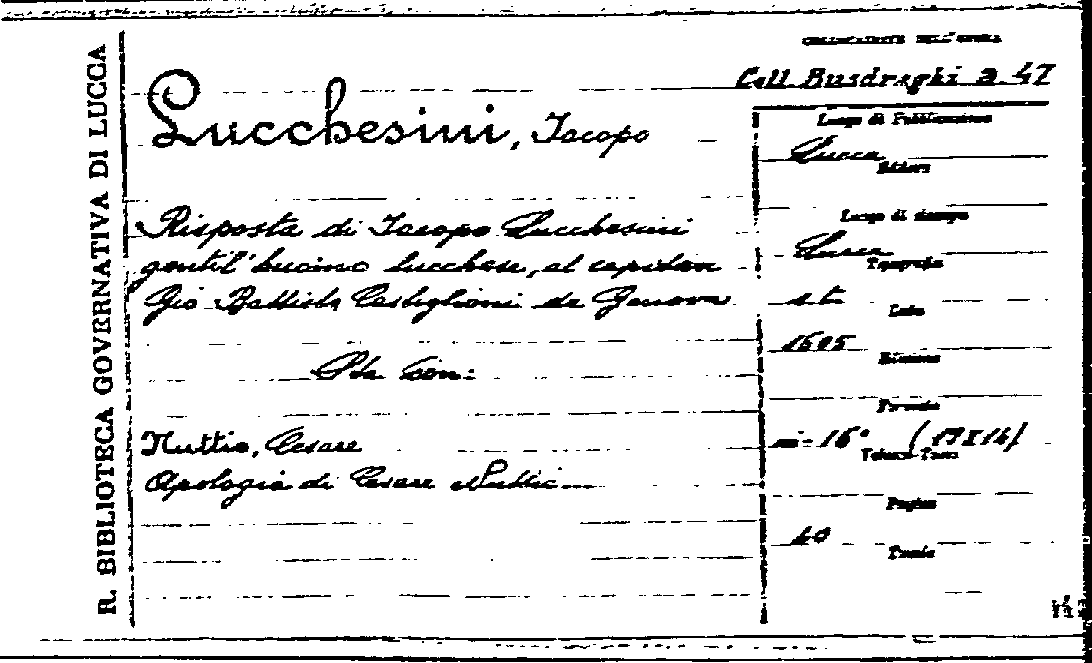 R. BIBLIOTECA GOVERNATIVA DI LUCCA
COLLOCAZIONE DELL'OPERA
Coll. Busdraghi a. 47
Lucchesini, Iacopo
Risposta di Iacopo Lucchesini
gentil'huomo lucchese, al capitan
Gio Battista Castiglioni da Genova
Sta con:
Nuttio, Cesare
Apologia di Cesare Nuttio
Luogo di Pubblicazione
Lucca
Editore
Luogo di stampa
Lucca
Tipografia
s.t.
Data
1605
Edizione
Formato
in-16° (19x14)
Volumi-Tomi
Pagine
40
Tavole